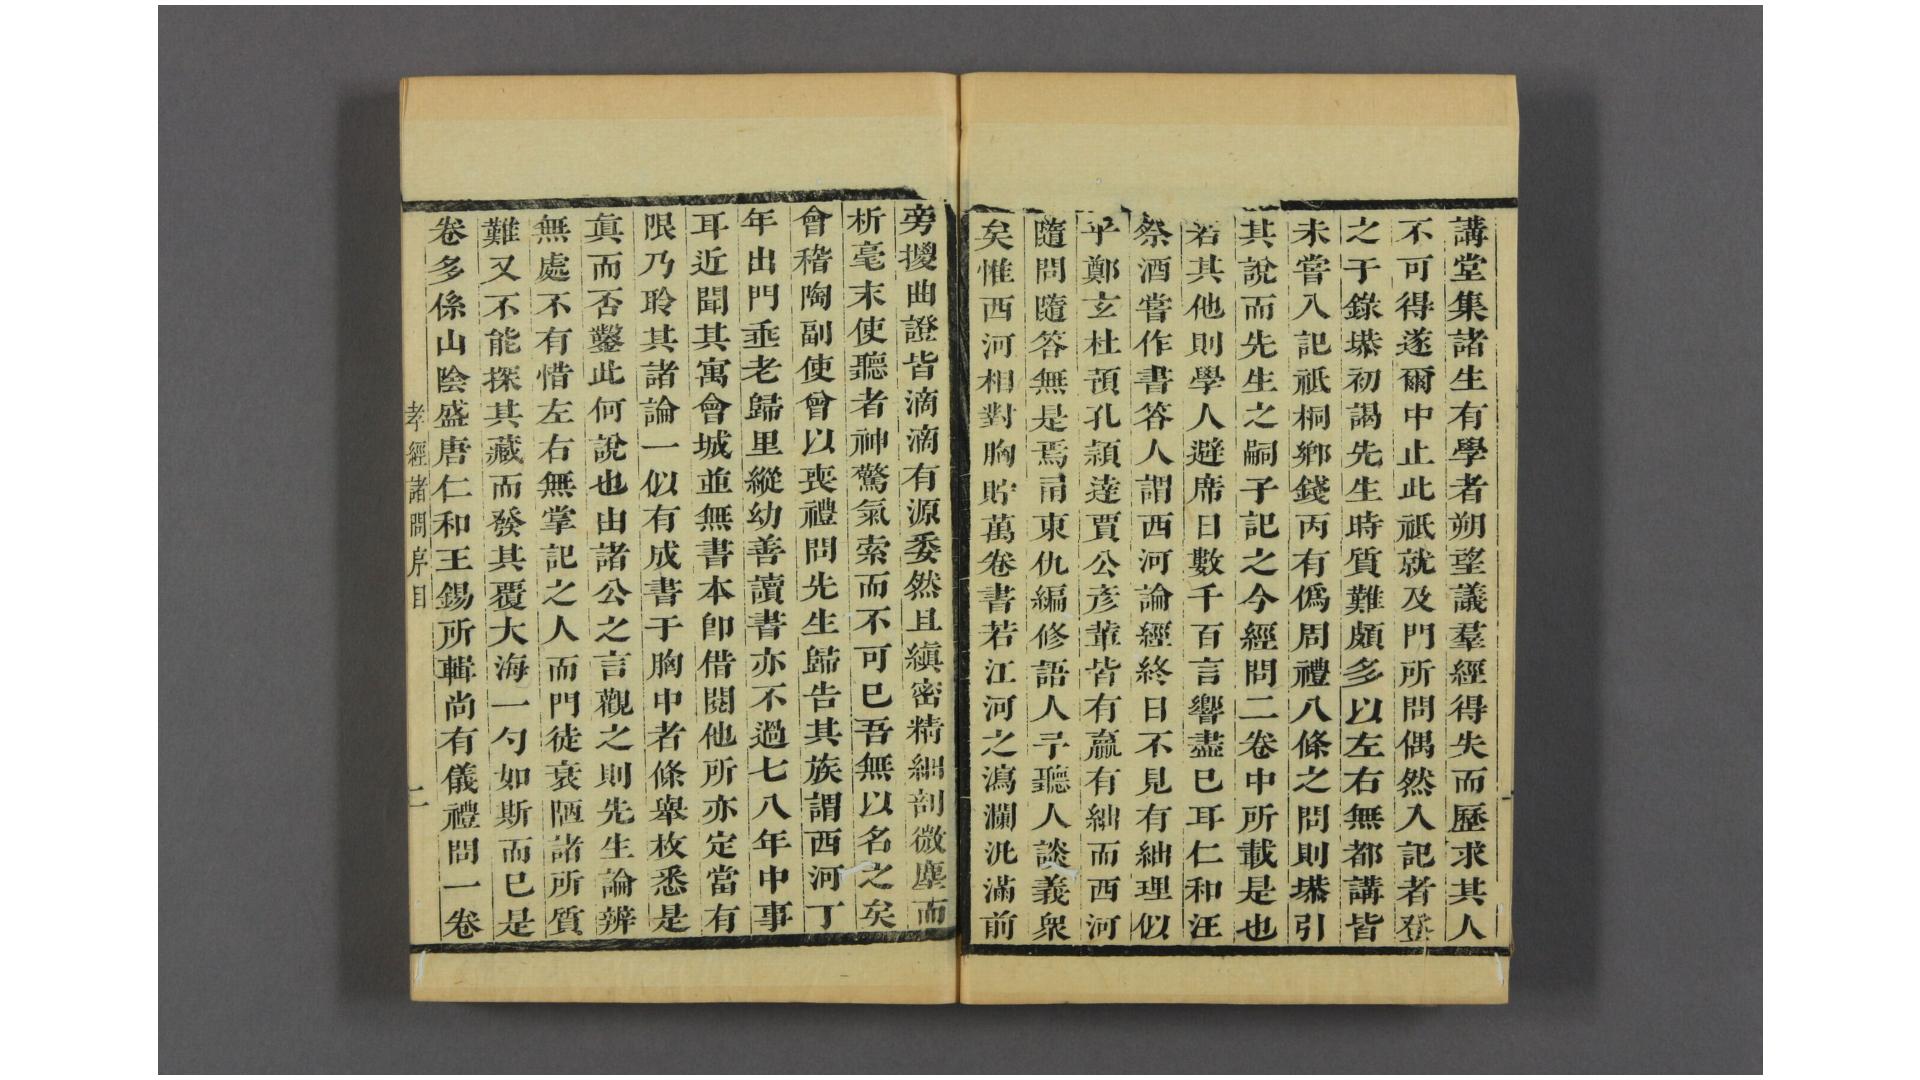 講堂集諸生有學者朔望議羣經得失而歷求其人
不可得遂爾中止此祇就及門所問偶然入記者登
之于錄㟒初謁先生時質難頗多以左右無都講皆
未嘗入記祇桐鄉錢丙有僞周禮八條之問則㟒引
其說而先生之嗣子記之今經問二卷中所載是也
若其他則學人避席日數千百言響盡已耳仁和汪
祭酒嘗作書答人謂西河論經終日不見有紬理似
乎鄭玄杜預孔穎達賈公彥輩皆有贏有絀而西河
隨問隨答無是焉甬東仇編修語人予聽人談義衆
矣惟西河相對胸貯萬卷書若江河之瀉瀾汎滿前
旁擾曲證皆滴滴有源委然且縝密精細剖微塵而
析毫末使聽者神驚氣索而不可已吾無以名之矣
會稽陶副使曾以喪禮問先生歸告其族謂西河丁
年出門垂老歸里縱幼善讀書亦不過七八年中事
耳近聞其寓會城並無書本卽借閱他所亦定當有
限乃聆其諸論一似有成書于胸中者條舉枚悉是
眞而否鑿此何說也由諸公之言觀之則先生論辨
無處不有惜左右無掌記之人而門徒衰陋諸所質
難又不能探其藏而發其覆大海一勺如斯而已是
卷多係山陰盛唐仁和王錫所輯尚有儀禮問一卷
孝經諸問序目 二